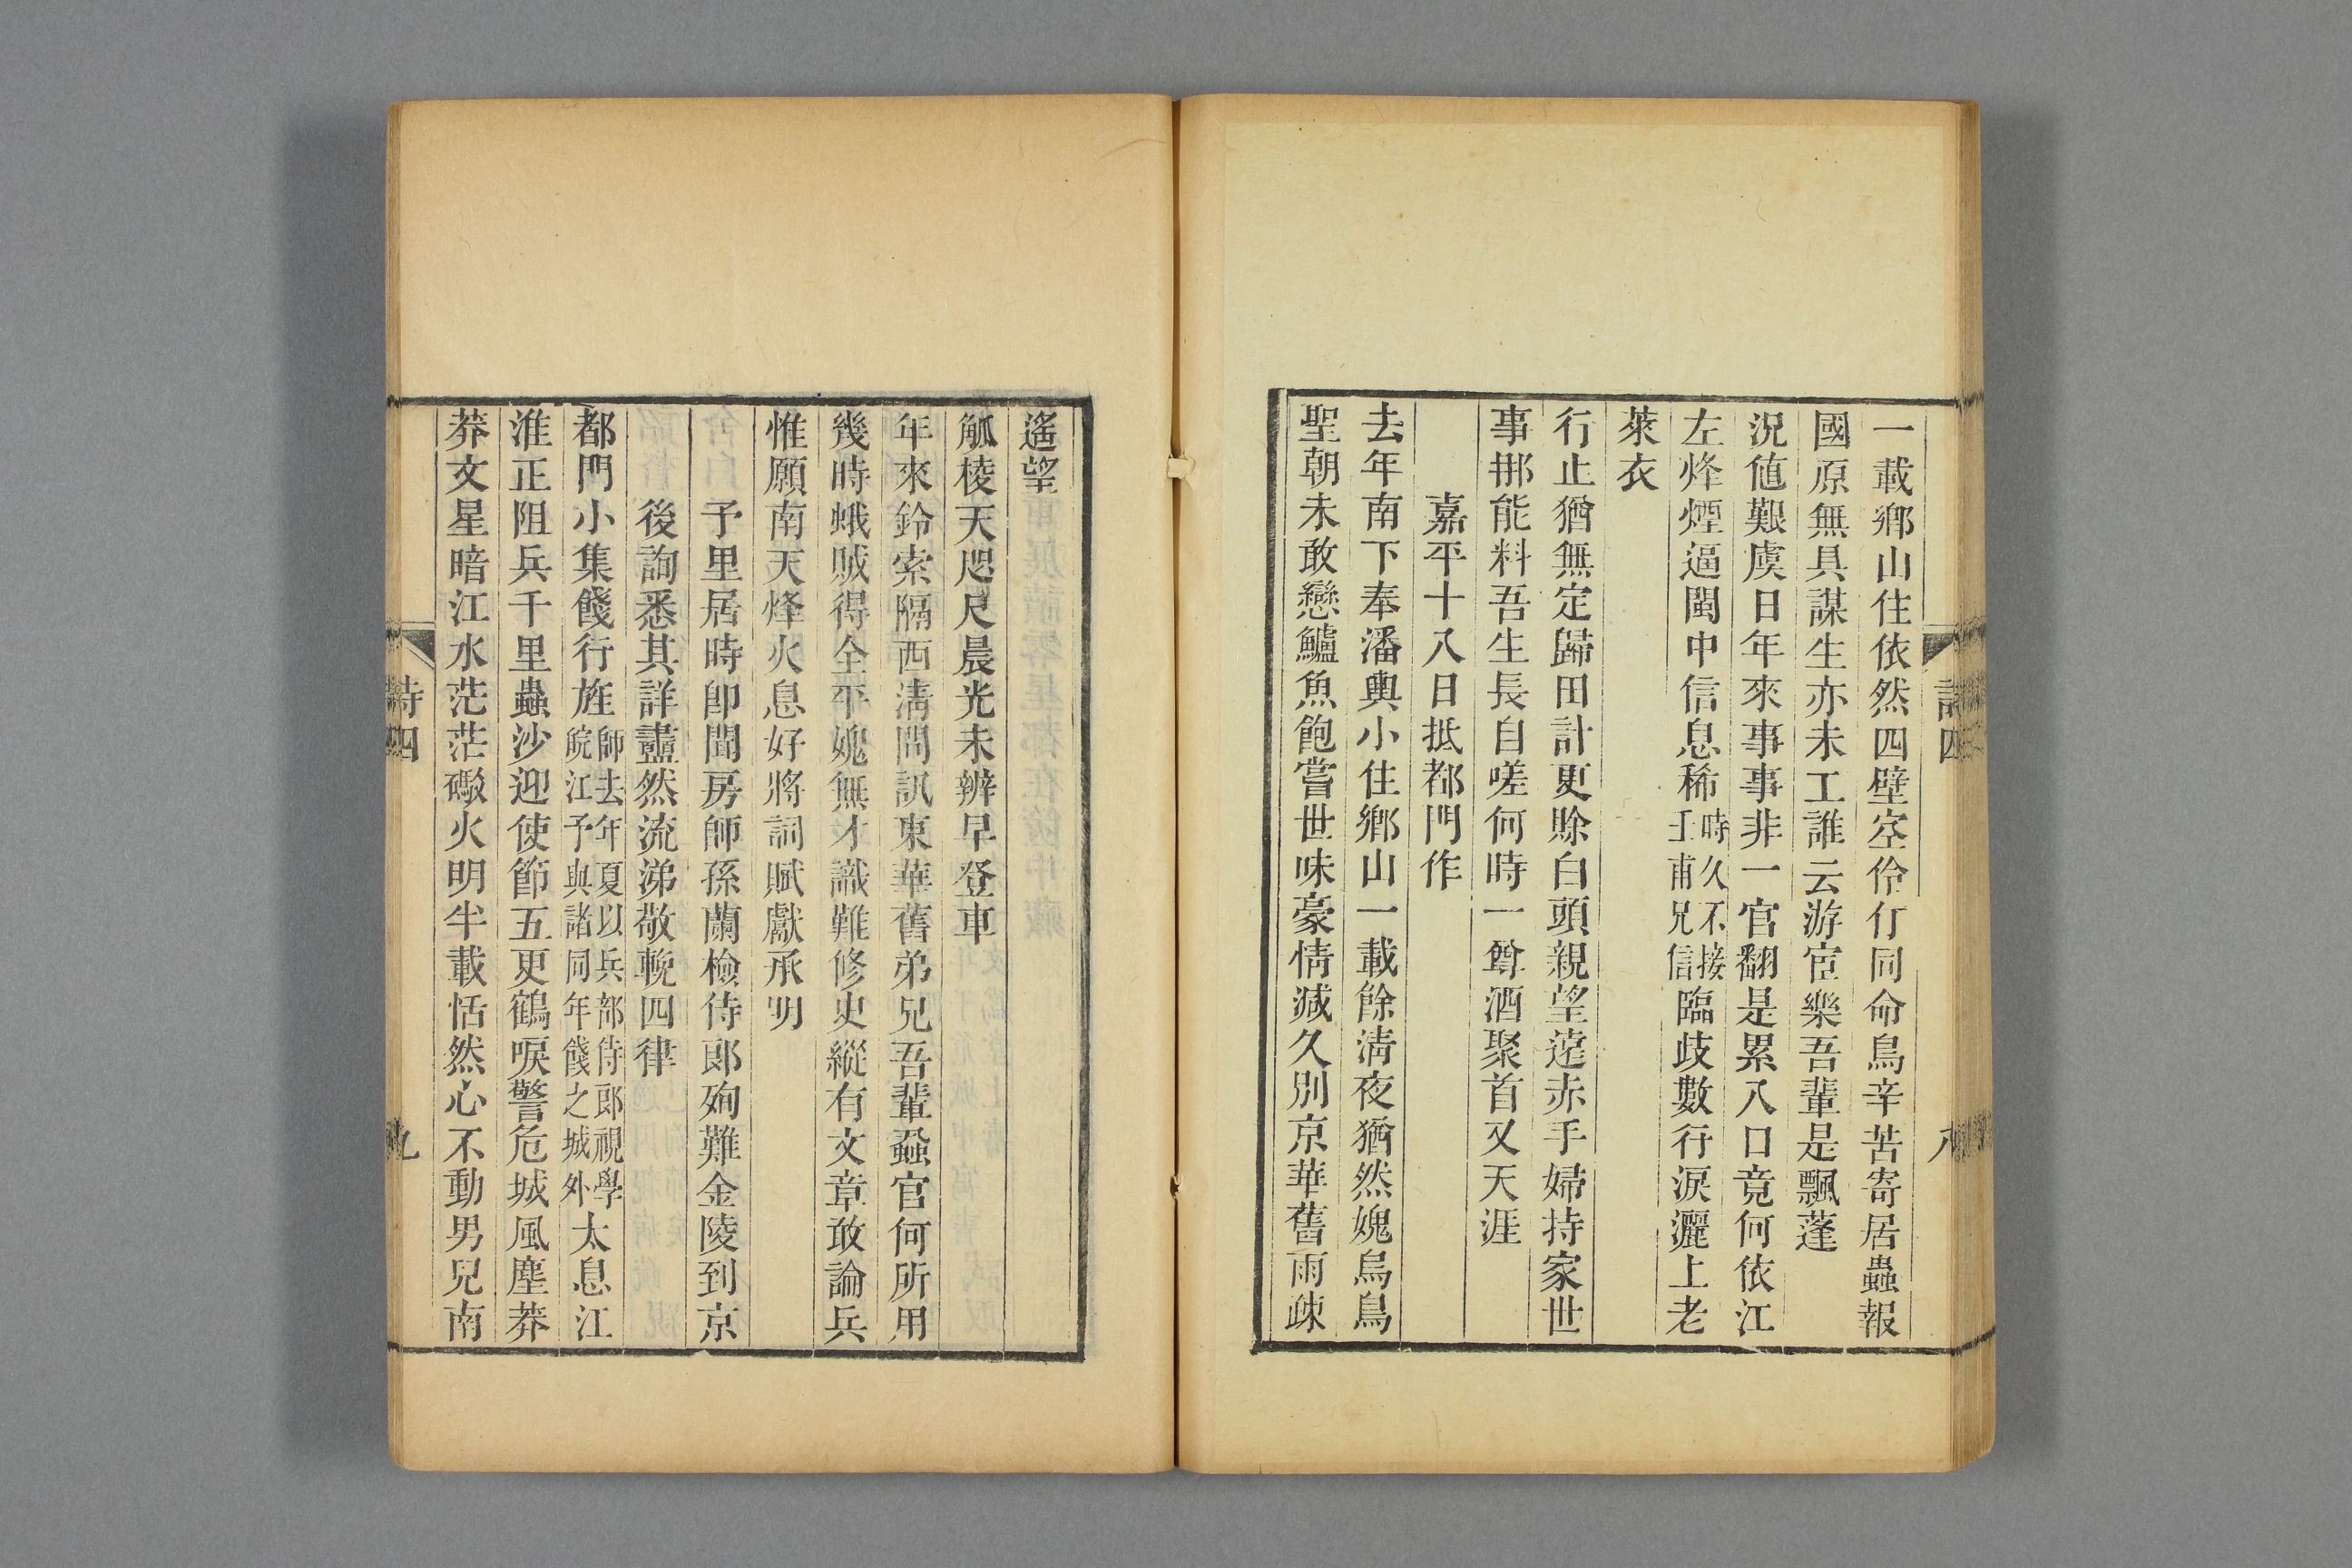 一載鄉山住依然四壁空伶仃同命鳥辛苦寄居蟲報
國原無具謀生亦未工誰云游宦樂吾輩是飄蓬
況値艱虞日年來事事非一官翻是累八口竟何依江
左烽煙逼閩中信息稀時久不接壬甫兄信臨歧數行淚灑上老
萊衣
行止猶無定歸田計更賒白頭親望遠赤手婦持家世
事挪能料吾生長自嗟何時一尊酒聚首又天涯
嘉平十八日抵都門作
去年南下奉潘輿小住鄉山一載餘淸夜猶然媿烏鳥
聖朝未敢戀鱸魚飽嘗世味豪情減久別京華舊雨疎
遙望
觚棱天咫尺晨光未辨早登車
年來鈴索隔西淸問訊東華舊弟兄吾輩蝨官何所用
幾時蛾賊得全平媿無才識難修史縱有文章敢論兵
惟願南天烽火息好將詞賦獻承明
予里居時卽聞房師孫蘭檢侍郎殉難金陵到京
後詢悉其詳衋然流涕敬輓四律
都門小集餞行旌師去年夏以兵部侍郎視學皖江予與諸同年餞之城外太息江
淮正阻兵千里蟲沙迎使節五更鶴唳警危城風塵莽
莽文星暗江水茫茫礮火明半載恬然心不動男兒南
詩四
九